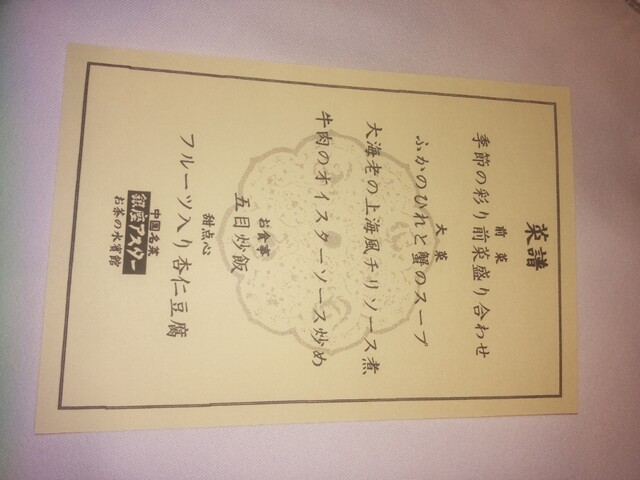 菜譜
前菜
季節の彩り前菜盛り合わせ
大菜
ふかのひれと蟹のスープ
大海老の上海風チリソース煮
牛肉のオイスターソース炒め
お食事
五目炒飯
甜点心
フルーツ入り杏仁豆腐
中國名菜
銀座アスター
お茶の水賓館